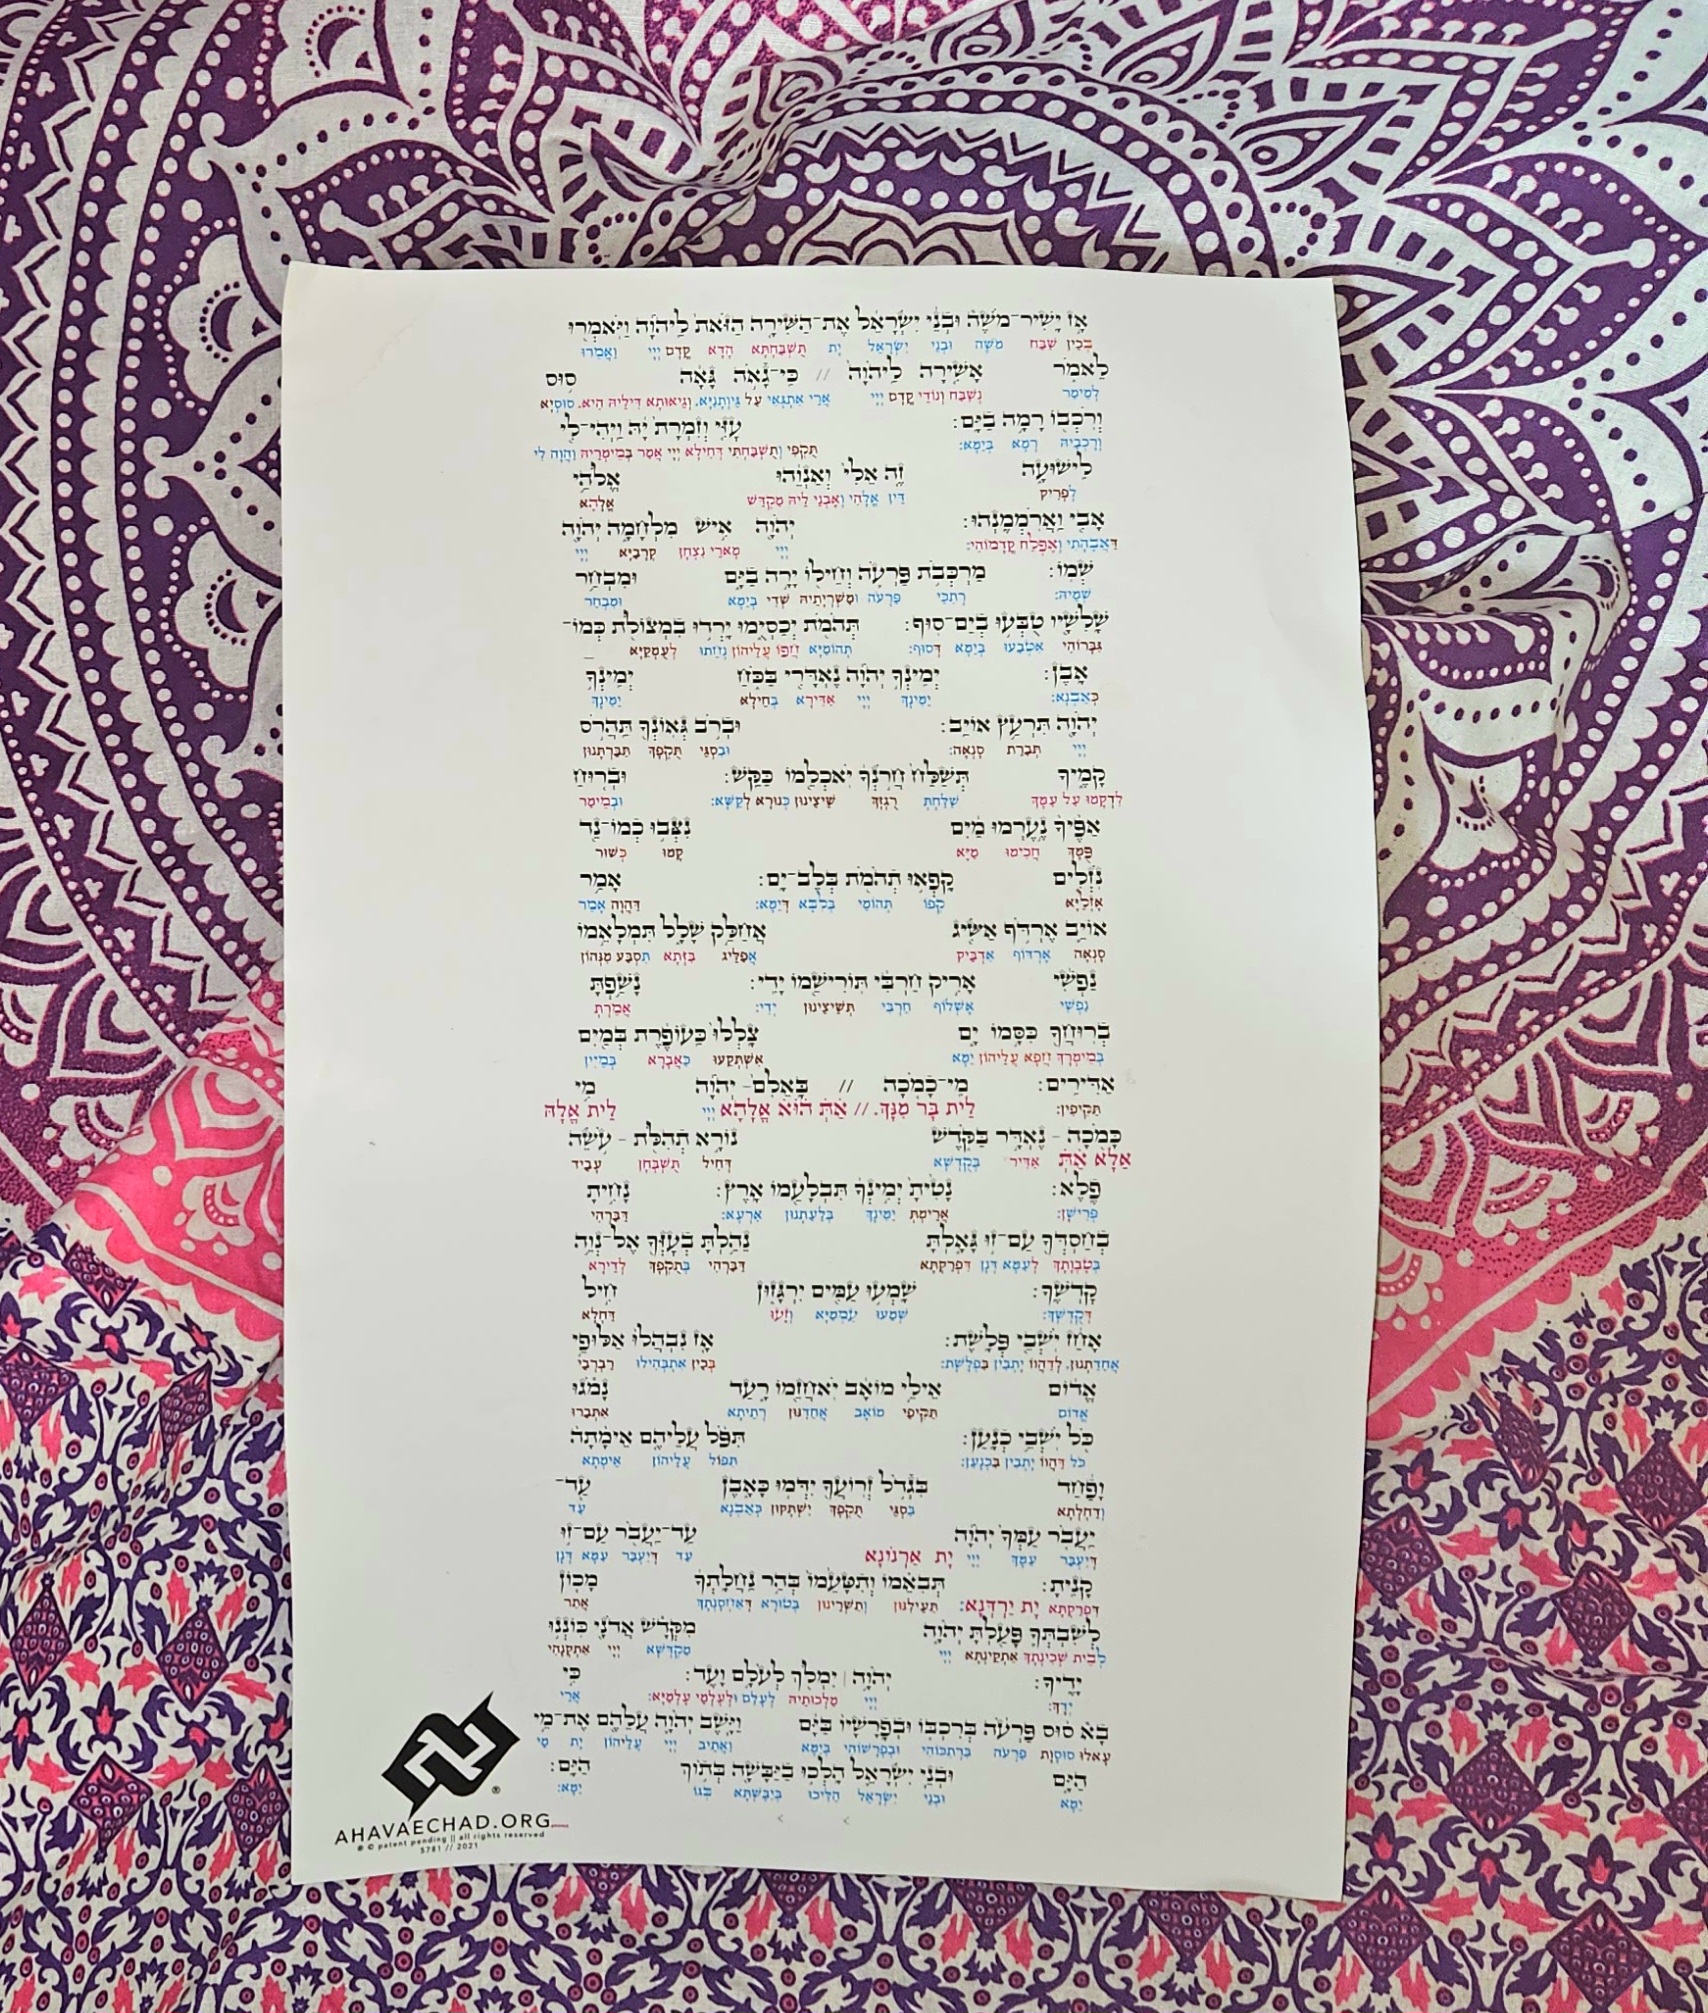 אָ֣ז יָשִֽׁיר־מֹשֶׁה֩ וּבְנֵ֨י יִשְׂרָאֵ֜ל אֶת־הַשִּׁירָ֤ה הַזֹּאת֙ לַֽיהֹוָ֔ה וַיֹּאמְר֖וּ
בְּכֵין שַׁבַּח מֹשֶׁה וּבְנֵי יִשְׂרָאֵל יָת תֻּשְׁבַּחְתָּא הָדָא קֳדָם יְיָי וַאֲמַרוּ
לֵאמֹ֑ר אָשִׁ֤ירָה לַֽיהֹוָה֙ // כִּֽי־גָאֹ֣ה גָּאָ֔ה ס֥וּס
לְמֵימַר נְשַׁבַּח וְנוֹדֵי קֳדָם יְיָי אֲרֵי אִתְגָּאִי עַל גֵּיוְתָנַיָּא, וְגֵיאוּתָא דִּילֵיהּ הִיא, סוּסְיָא
וְרֹכְב֖וֹ רָמָ֥ה בַיָּֽם׃ עׇזִּ֤י וְזִמְרָת֙ יָ֔הּ וַֽיְהִי־לִ֖י
וְרָכְבֵיהּ רְמָא בְּיַמָּא׃ תֻּקְפִי וְתֻשְׁבַּחְתִּי דְּחִילָא יְיָי אֲמַר בְּמֵימְרֵיהּ וַהֲוָה לִי
לִֽישׁוּעָ֑ה זֶ֤ה אֵלִי֙ וְאַנְוֵ֔הוּ אֱלֹהֵ֥י
לְפָרִיק דֵּין אֱלָהִי וְאֶבְנֵי לֵיהּ מַקְדַּשׁ אֱלָהָא
אָבִ֖י וַאֲרֹמְמֶֽנְהוּ׃ יְהֹוָ֖ה אִ֣ישׁ מִלְחָמָ֑ה יְהֹוָ֖ה
דַּאֲבָהָתִי וְאֶפְלַח קֳדָמוֹהִי׃ יְיָי מָארֵי נִצְחָן קְרָבַיָּא יְיָי
שְׁמֽוֹ׃ מַרְכְּבֹ֥ת פַּרְעֹ֛ה וְחֵיל֖וֹ יָרָ֣ה בַיָּ֑ם וּמִבְחַ֥ר
שְׁמֵיהּ׃ רְתִכֵּי פַּרְעֹה וּמַשִׁרְיָתֵיהּ שְׁדִי בְּיַמָּא וּמִבְחַר
שָֽׁלִשָׁ֖יו טֻבְּע֥וּ בְיַם־סֽוּף׃ תְּהֹמֹ֖ת יְכַסְיֻ֑מוּ יָרְד֥וּ בִמְצוֹלֹ֖ת כְּמוֹ־
גִּבָּרוֹהִי אִטְבַּעוּ בְּיַמָּא דְּסוּף׃ תְּהוֹמַיָּא חֲפוֹ עֲלֵיהוֹן נְחַתוּ לְעֻמְקַיָּא
אָֽבֶן׃ יְמִֽינְךָ֣ יְהֹוָ֔ה נֶאְדָּרִ֖י בַּכֹּ֑חַ יְמִֽינְךָ֥
כְּאַבְנָא׃ יַמִּינָךְ יְיָי אַדִּירָא בְחֵילָא יַמִּינָךְ
יְהֹוָ֖ה תִּרְעַ֥ץ אוֹיֵֽב׃ וּבְרֹ֥ב גְּאוֹנְךָ֖ תַּהֲרֹ֣ס
יְיָי תְּבַרַת סָנְאָה׃ וּבִסְגֵּי תֻּקְפָךְ תַּבַּרְתָּנוּן
קָמֶ֑יךָ תְּשַׁלַּח֙ חֲרֹ֣נְךָ֔ יֹאכְלֵ֖מוֹ כַּקַּֽשׁ׃ וּבְר֤וּחַ
לִדְקָמוּ עַל עַמָּךְ שַׁלַּחְתְּ רֻגְזָךְ שֵׁיצֵינוּן כְּנוּרָא לְקַשָּׁא׃ וּבְמֵימַר
אַפֶּ֙יךָ֙ נֶ֣עֶרְמוּ מַ֔יִם נִצְּב֥וּ כְמוֹ־נֵ֖ד
פֻּמָּךְ חֲכִימוּ מַיָּא קָמוּ כְּשׁוּר
נֹזְלִ֑ים קָֽפְא֥וּ תְהֹמֹ֖ת בְּלֶב־יָֽם׃ אָמַ֥ר
אָזְלַיָּא קְפוֹ תְּהוֹמֵי בְּלִבָּא דְּיַמָּא׃ דַּהֲוָה אָמַר
אוֹיֵ֛ב אֶרְדֹּ֥ף אַשִּׂ֖יג אֲחַלֵּ֣ק שָׁלָ֑ל תִּמְלָאֵ֣מוֹ
סָנְאָה אֶרְדּוֹף אַדְבֵּיק אֲפַלֵּיג בִּזְּתָא תִּסְבַּע מִנְּהוֹן
נַפְשִׁ֔י אָרִ֣יק חַרְבִּ֔י תּוֹרִישֵׁ֖מוֹ יָדִֽי׃ נָשַׁ֥פְתָּ
נַפְשִׁי אֶשְׁלוֹף חַרְבִּי תְּשֵׁיצֵינוּן יְדִי׃ אֲמַרְתְּ
בְרוּחֲךָ֖ כִּסָּ֣מוֹ יָ֑ם צָֽלְלוּ֙ כַּֽעוֹפֶ֔רֶת בְּמַ֖יִם
בְּמֵימְרָךְ חֲפָא עֲלֵיהוֹן יַמָּא אִשְׁתְּקַעוּ כַּאֲבָרָא בְּמַיִּין
אַדִּירִֽים׃ מִֽי־כָמֹ֤כָה // בָּֽאֵלִם֙ - יְהֹוָ֔ה מִ֥י
תַּקִּיפִין׃ לֵית בָּר מִנָּךְ. // אַתְּ הוּא אֱלָהָא יְיָי לֵית אֱלָהּ
כָּמֹ֖כָה - נֶאְדָּ֣ר בַּקֹּ֑דֶשׁ נוֹרָ֥א תְהִלֹּ֖ת - עֹ֥שֵׂה
אֶלָּא אַתְּ אַדִּיר בְּקֻדְשָׁא דְּחִיל תֻּשְׁבְּחָן עָבֵיד
פֶֽלֶא׃ נָטִ֙יתָ֙ יְמִ֣ינְךָ֔ תִּבְלָעֵ֖מוֹ אָֽרֶץ׃ נָחִ֥יתָ
פְּרִישָׁן׃ אֲרֵימְתְּ יַמִּינָךְ בְּלַעַתְנוּן אַרְעָא׃ דַּבַּרְהִי
בְחַסְדְּךָ֖ עַם־ז֣וּ גָּאָ֑לְתָּ נֵהַ֥לְתָּ בְעׇזְּךָ֖ אֶל־נְוֵ֥ה
בְּטָבְוָתָךְ לְעַמָּא דְּנָן דִּפְרַקְתָּא דַּבַּרְהִי בְּתֻקְפָךְ לְדֵירָא
קׇדְשֶֽׁךָ׃ שָֽׁמְע֥וּ עַמִּ֖ים יִרְגָּז֑וּן חִ֣יל
דְּקֻדְשָׁךְ׃ שְׁמַעוּ עַמְמַיָּא וְזָעוּ דַּחְלָא
אָחַ֔ז יֹשְׁבֵ֖י פְּלָֽשֶׁת׃ אָ֤ז נִבְהֲלוּ֙ אַלּוּפֵ֣י
אֲחַדַתְנוּן, לְדַהֲווֹ יָתְבִין בִּפְלָשֶׁת׃ בְּכֵין אִתְבְּהִילוּ רַבְרְבֵי
אֱד֔וֹם אֵילֵ֣י מוֹאָ֔ב יֹֽאחֲזֵ֖מוֹ רָ֑עַד נָמֹ֕גוּ
אֱדוֹם תַּקִּיפֵי מוֹאָב אֲחַדִנּוּן רְתֵיתָא אִתְּבַרוּ
כֹּ֖ל יֹשְׁבֵ֥י כְנָֽעַן׃ תִּפֹּ֨ל עֲלֵיהֶ֤ם אֵימָ֙תָה֙
כֹּל דַּהֲווֹ יָתְבִין בִּכְנַעַן׃ תִּפּוֹל עֲלֵיהוֹן אֵימְתָא
וָפַ֔חַד בִּגְדֹ֥ל זְרוֹעֲךָ֖ יִדְּמ֣וּ כָּאָ֑בֶן עַד־
וְדַחְלְתָא בִּסְגֵּי תֻקְפָךְ יִשְׁתְּקוּן כְּאַבְנָא עַד
יַעֲבֹ֤ר עַמְּךָ֙ יְהֹוָ֔ה עַֽד־יַעֲבֹ֖ר עַם־ז֥וּ
דְּיִעְבַר עַמָּךְ יְיָי יָת אַרְנוֹנָא עַד דְּיִעְבַר עַמָּא דְּנָן
קָנִֽיתָ׃ תְּבִאֵ֗מוֹ וְתִטָּעֵ֙מוֹ֙ בְּהַ֣ר נַחֲלָֽתְךָ֔ מָכ֧וֹן
דִּפְרַקְתָּא יָת יַרְדְּנָא׃ תַּעֵילִנּוּן וְתַשְׁרֵינוּן בְּטוּרָא דְּאַחְסָנְתָךְ אֲתַר
לְשִׁבְתְּךָ֛ פָּעַ֖לְתָּ יְהֹוָ֑ה מִקְּדָ֕שׁ אֲדֹנָ֖י כּוֹנְנ֥וּ
לְבֵית שְׁכִינְתָךְ אַתְקֵינְתָּא יְיָי מַקְדְּשָׁא יְיָי אַתְקְנָהִי
יָדֶֽיךָ׃ יְהֹוָ֥ה ׀ יִמְלֹ֖ךְ לְעֹלָ֥ם וָעֶֽד׃ כִּ֣י
יְדָךְ׃ יְיָי מַלְכוּתֵיהּ לְעָלַם וּלְעָלְמֵי עָלְמַיָּא׃ אֲרֵי
בָא֩ ס֨וּס פַּרְעֹ֜ה בְּרִכְבּ֤וֹ וּבְפָרָשָׁיו֙ בַּיָּ֔ם וַיָּ֧שֶׁב יְהֹוָ֛ה עֲלֵהֶ֖ם אֶת־מֵ֣י
עָאלוּ סוּסָוָת פַּרְעֹה בִּרְתִכּוֹהִי וּבְפָרָשׁוֹהִי בְּיַמָּא וַאֲתֵיב יְיָי עֲלֵיהוֹן יָת מֵי
הַיָּ֑ם וּבְנֵ֧י יִשְׂרָאֵ֛ל הָלְכ֥וּ בַיַּבָּשָׁ֖ה בְּת֥וֹךְ הַיָּֽם׃
יַמָּא וּבְנֵי יִשְׂרָאֵל הַלִּיכוּ בְּיַבֶּשְׁתָּא בְּגוֹ יַמָּא׃
®
AHAVAECHAD.ORG
® © patent pending || all rights reserved
5781 // 2021